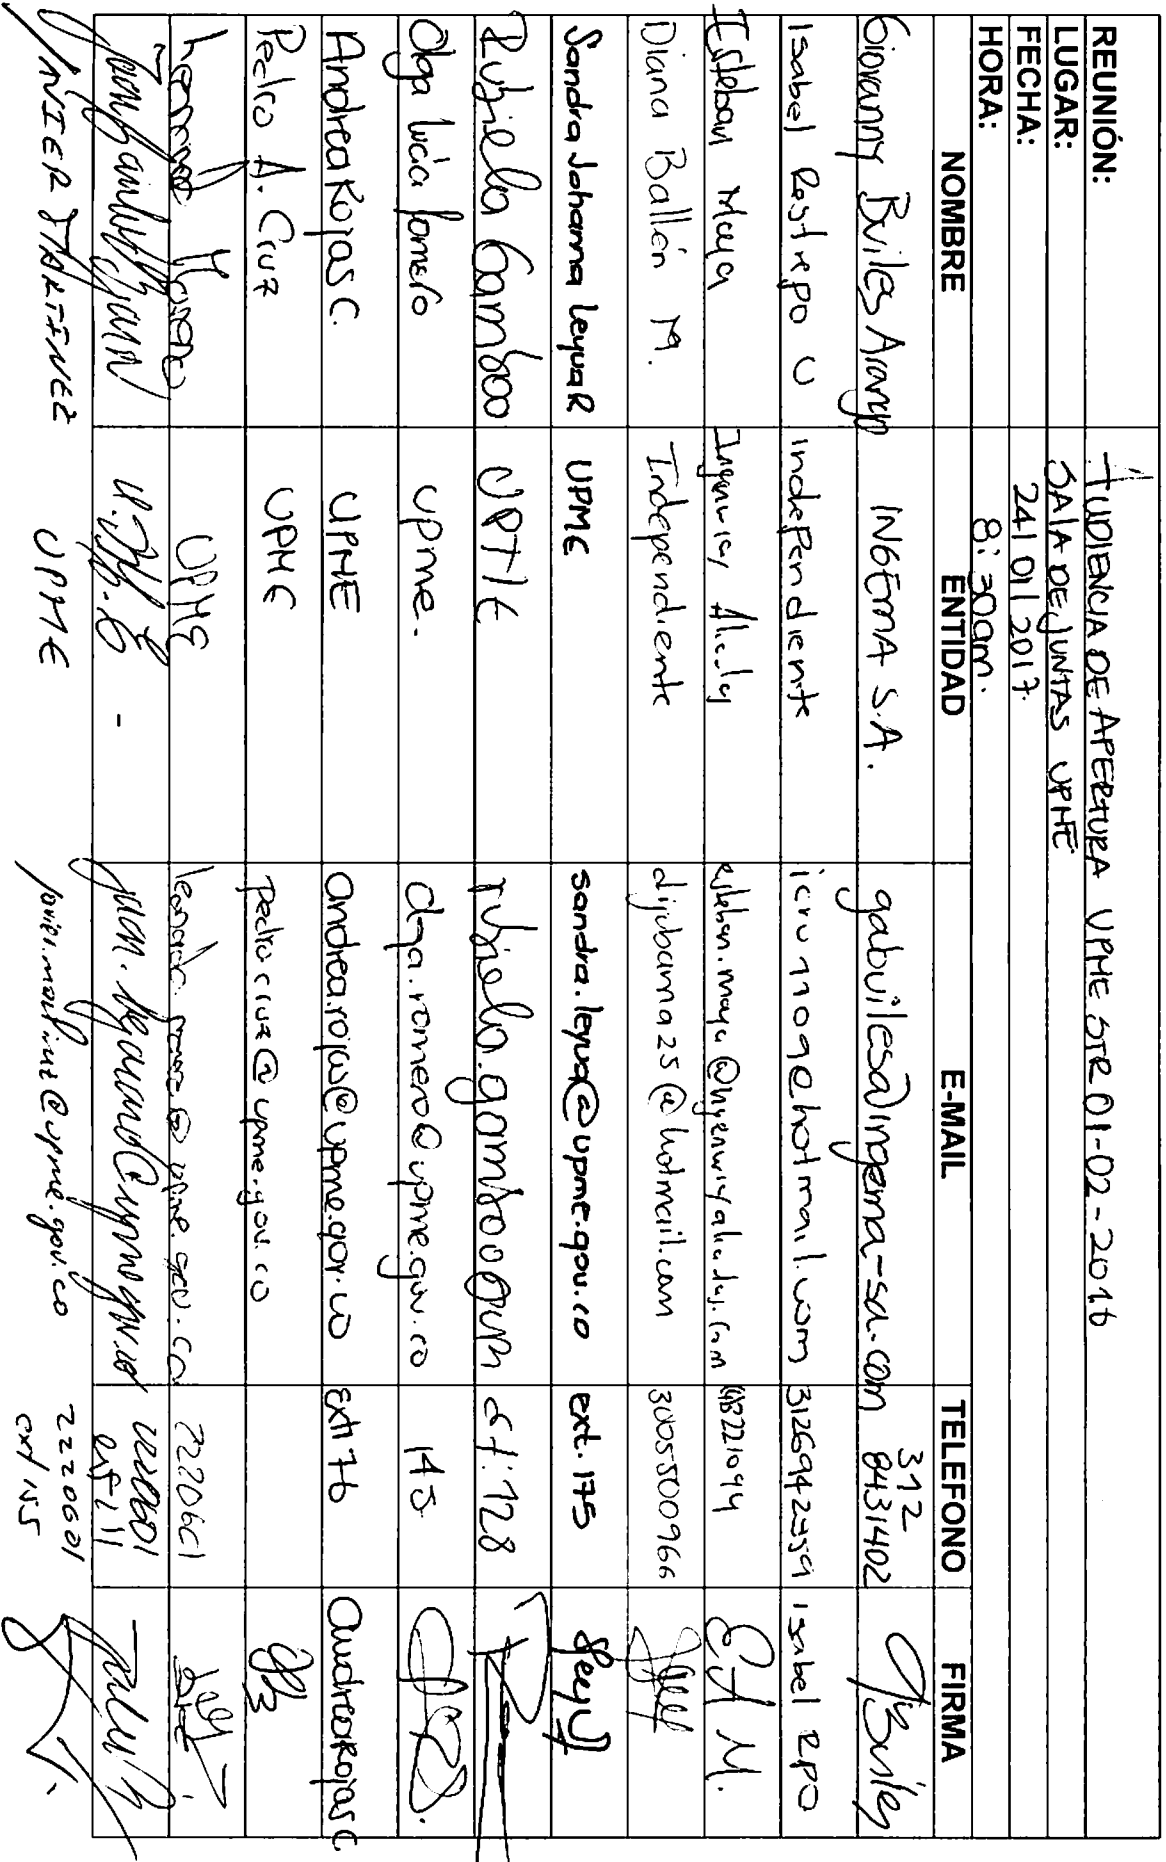 REUNIÓN: AUDIENCIA DE APERTURA UPME STR 01-02-2016
LUGAR: SALA DE JUNTAS UPME
FECHA: 24/01/2017
HORA: 8:30am.
NOMBRE ENTIDAD E-MAIL TELEFONO FIRMA
Giovanny Builes Arango INGEMA S.A. gabuilesa@ingema-sa.com 312 8431402 GBuiles
Isabel Restrepo U independiente icru1110@hotmail.com 3126942559 Isabel Rpo
Esteban Maya 48221044 E M.
Diana Ballén M. Independiente dijubama25@hotmail.com 3005500966
Sandra Johanna Leyva R UPME sandra.leyva@upme.gov.co ext. 175
Rubiela Gamboa UPME rubiela.gamboa@upm 128
Olga Lucía Romero upme. olga.romero@upme.gov.co 145
Andrea Rojas C. UPME andrea.rojas@upme.gov.co ext 176 Andrea Rojas C
Pedro A. Cruz UPME pedro.cruz@upme.gov.co
Leonardo Moreno UPME leonardo.moreno@upme.gov.co 2220601
JAVIER MARTINEZ UPME javier.martinez@upme.gov.co 2220601 ext 155